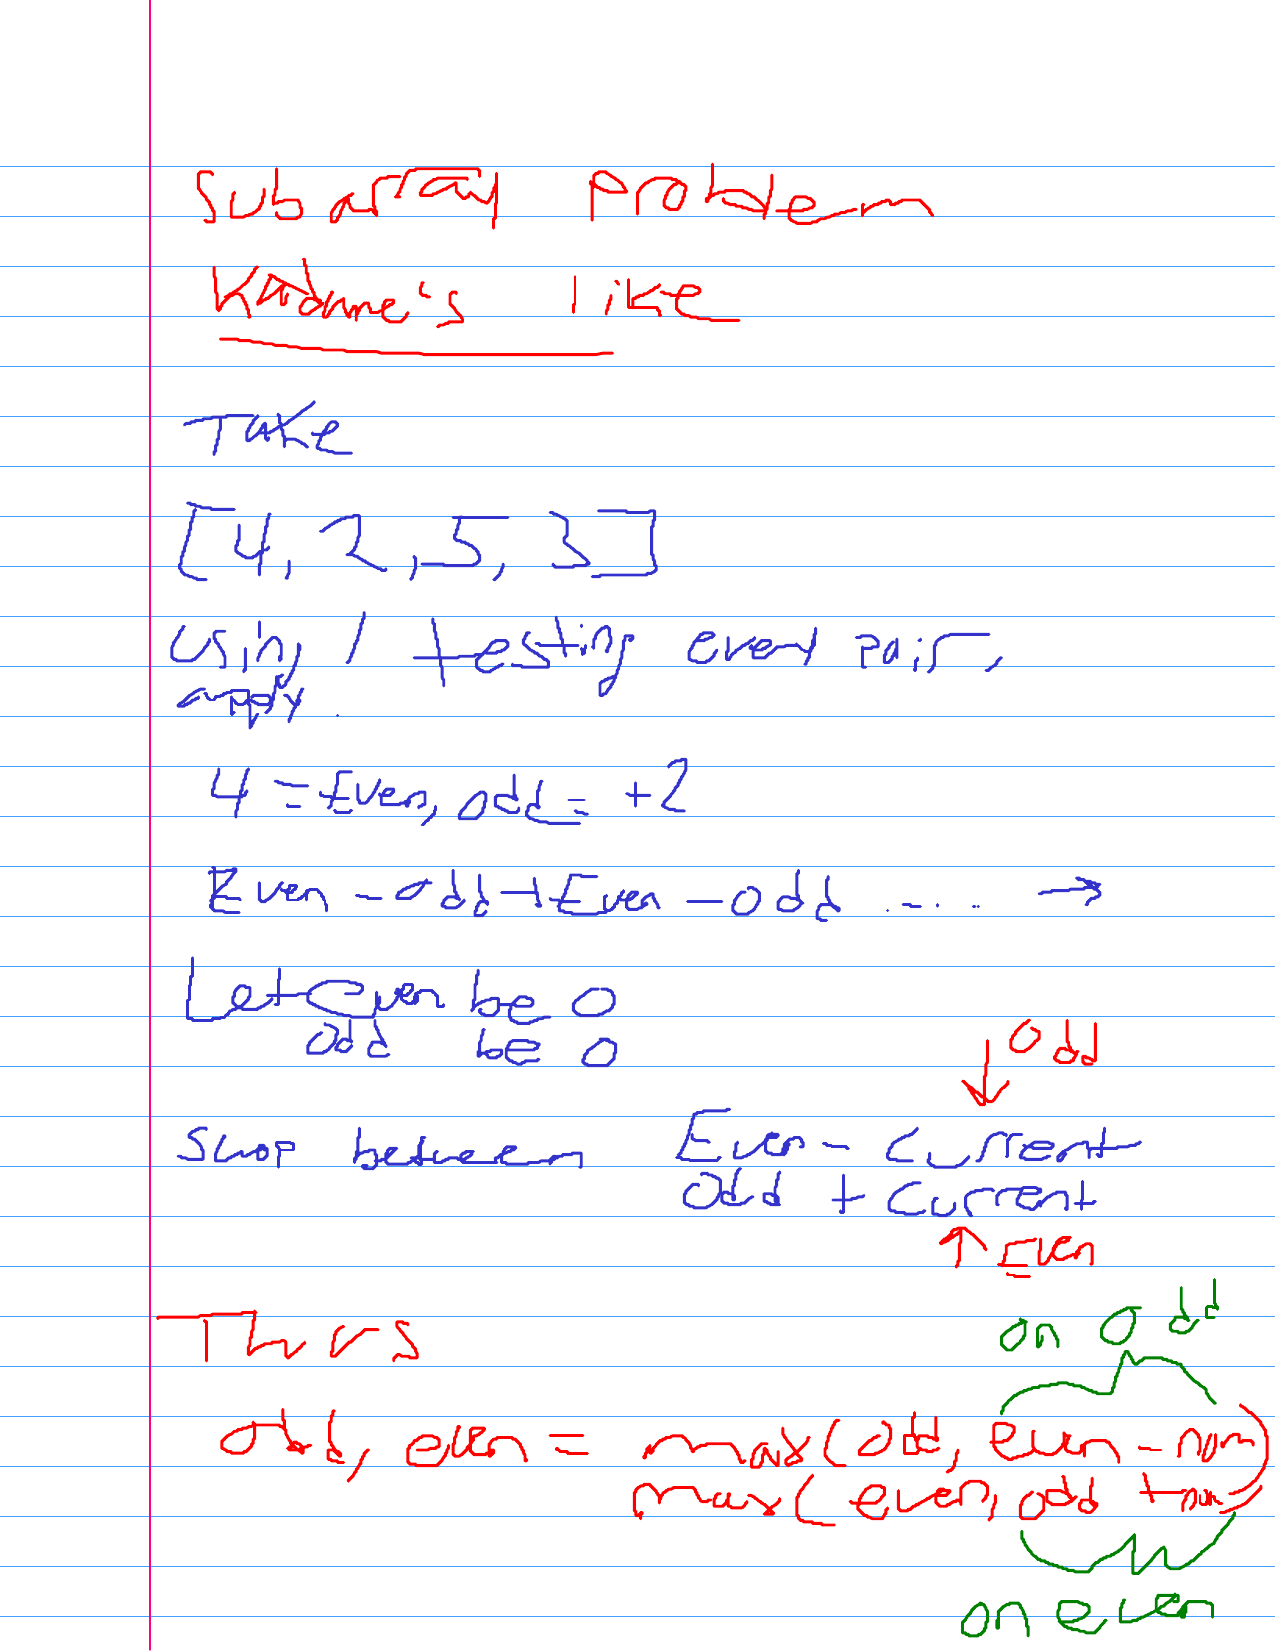 Subarray Problem
Kadane's like
Take
[4, 2, 5, 3]
Using / testing every pair,
apply.
4 = Even, odd = +2
Even - odd + Even - odd ..... →
Let Even be 0
odd be 0
↓ Odd
Swap between Even - Current
Odd + Current
↑ Even
Thus
on Odd
odd, even = max(odd, even - num)
max(even, odd + num)
on even